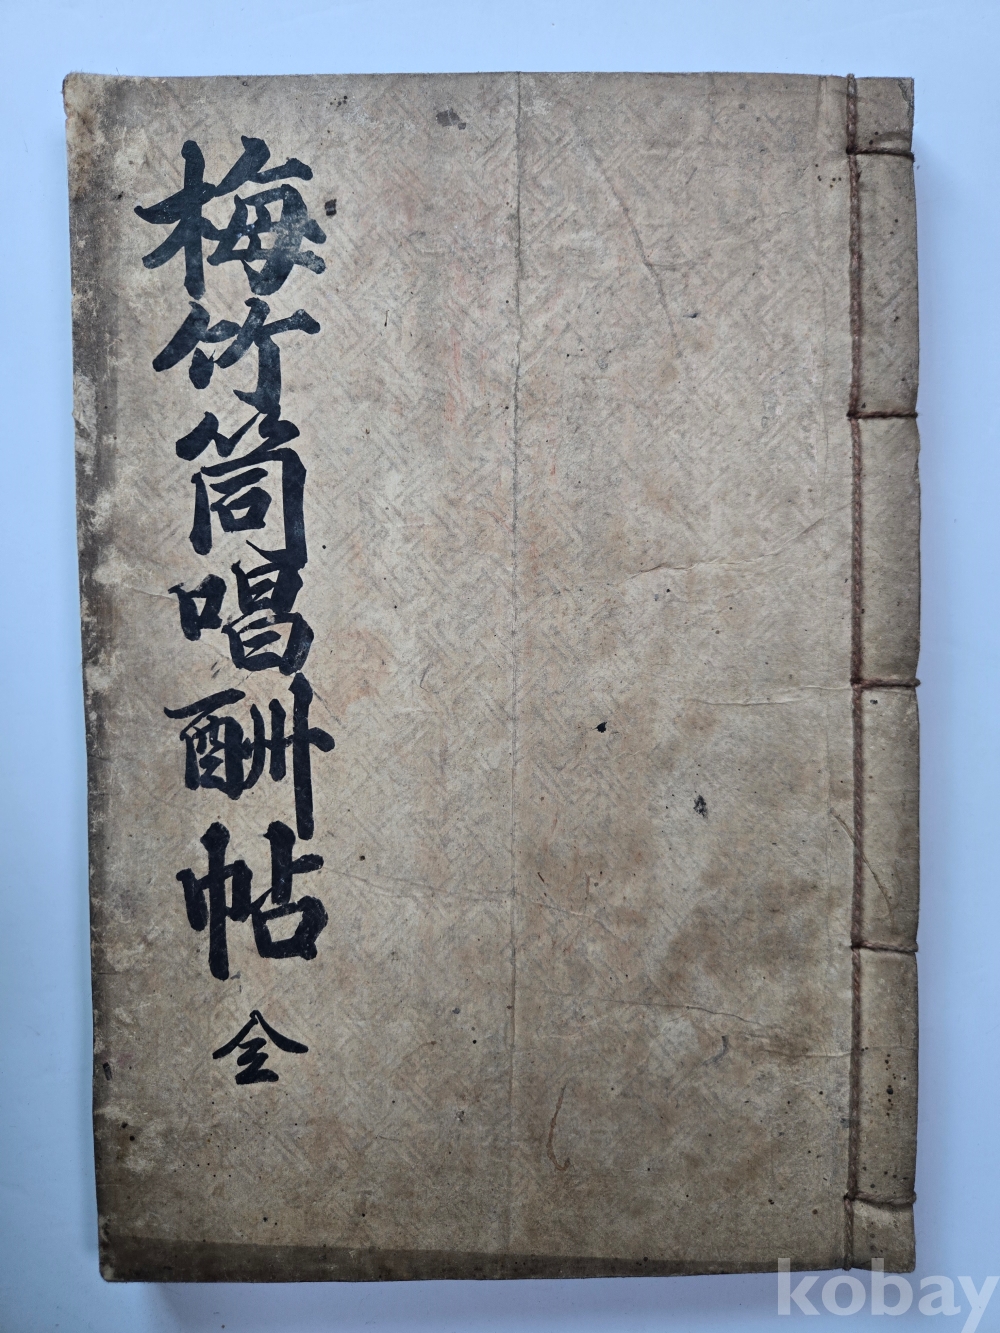 梅竹筒唱酬帖 全
kobay